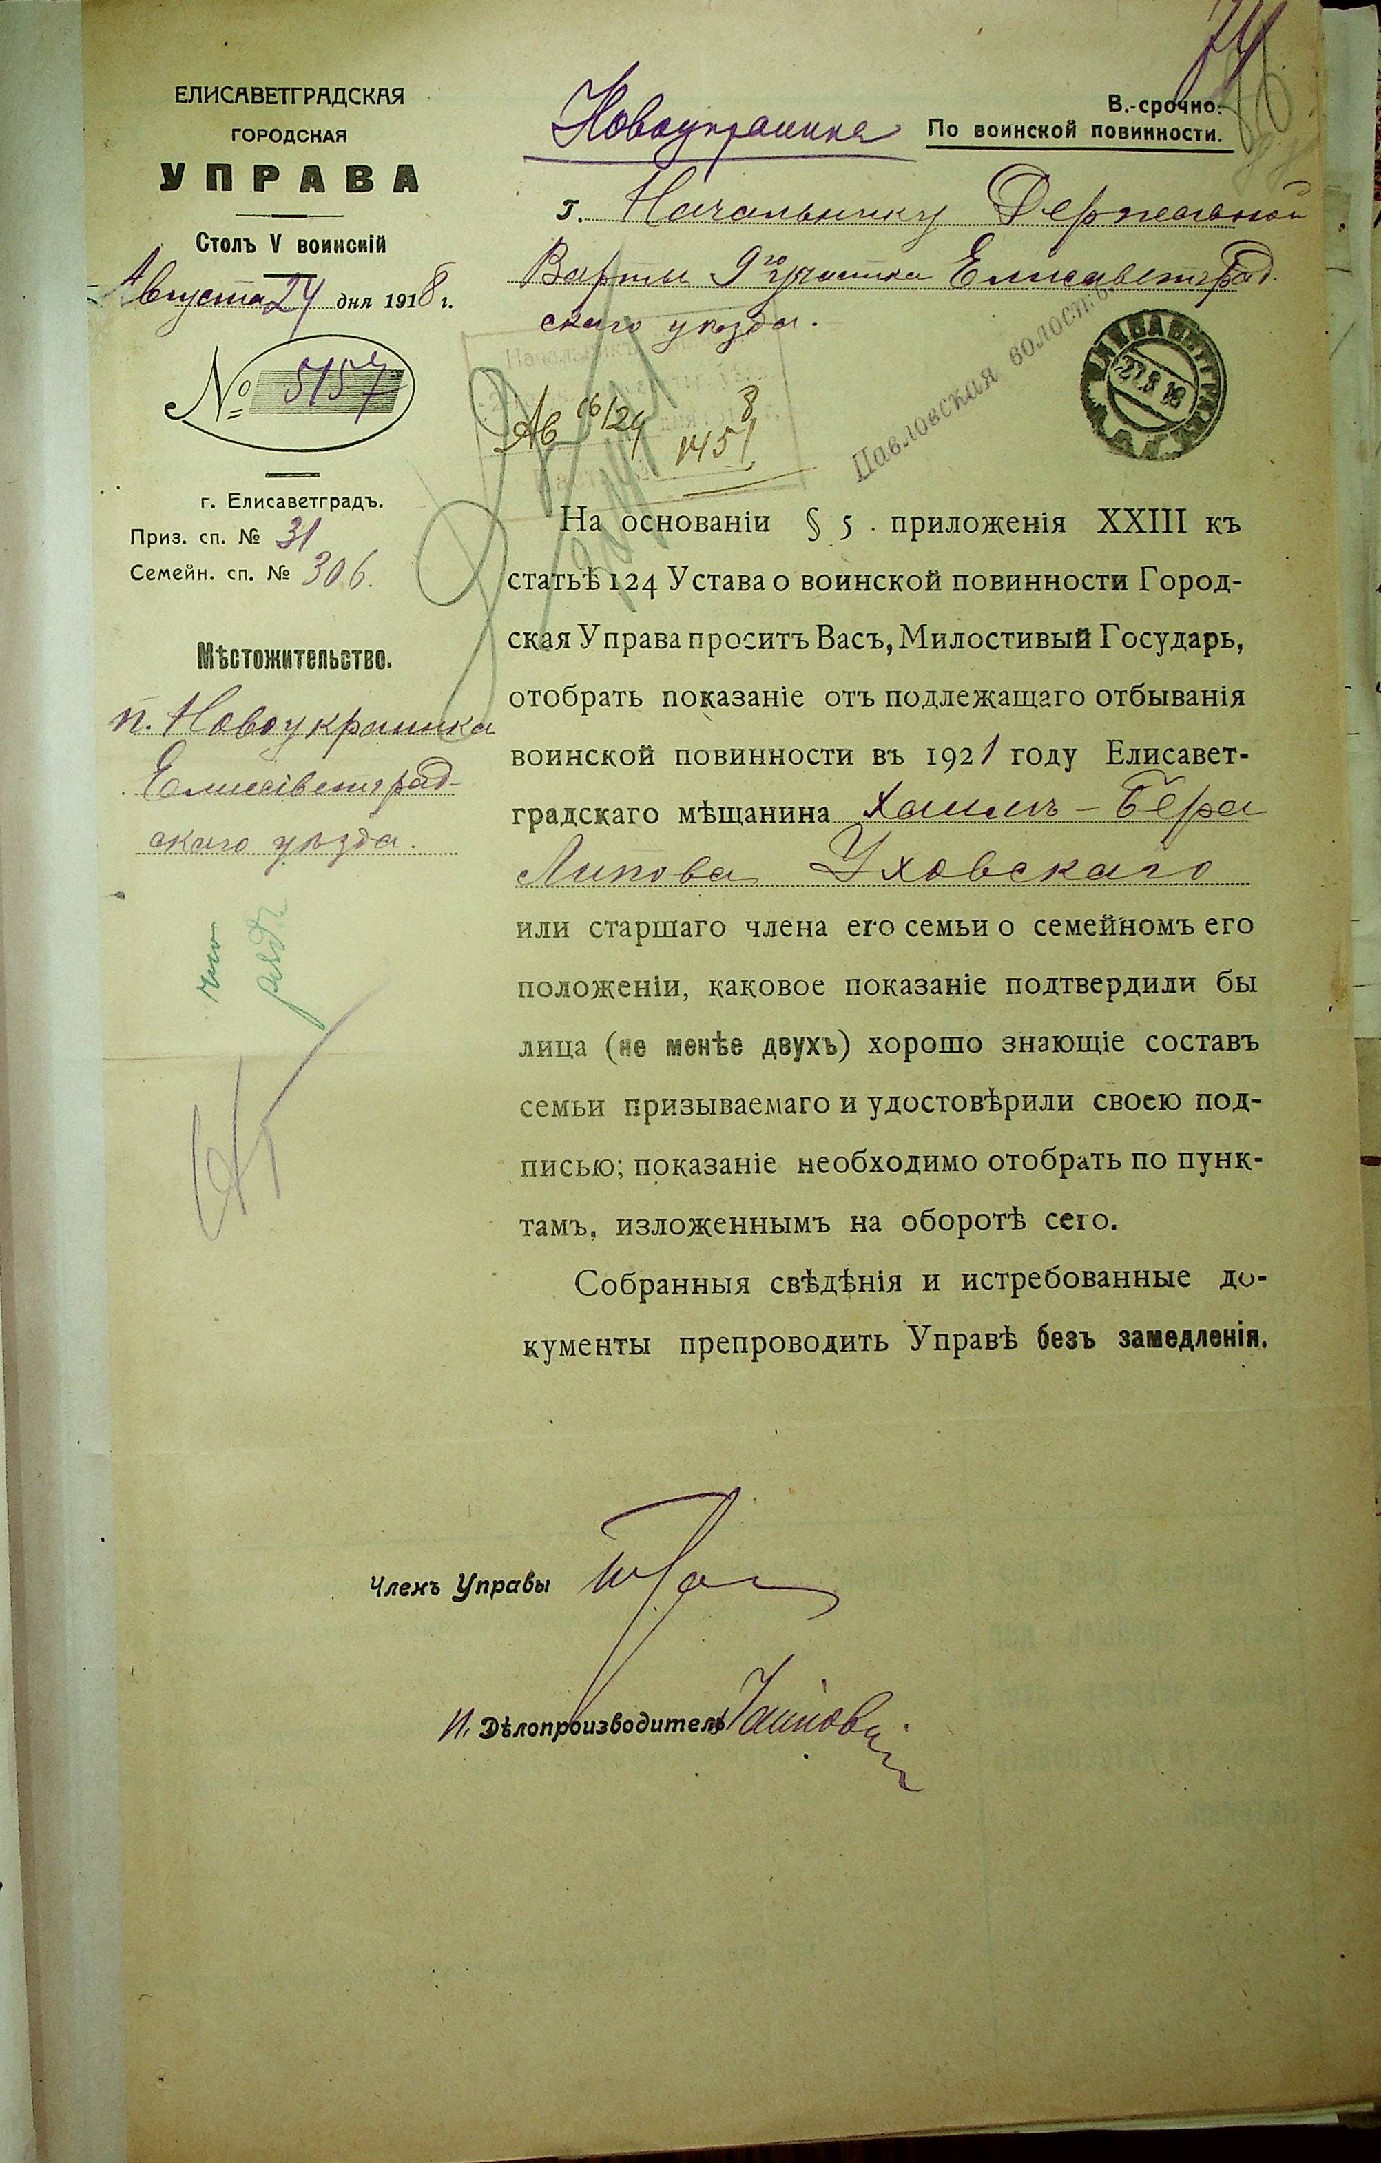 74
ЕЛИСАВЕТГРАДСКАЯ
ГОРОДСКАЯ
УПРАВА
Столъ V воинскій
Августа 24 дня 1918 г.
№ 5157
г. Елисаветградъ.
Приз. сп. № 31
Семейн. сп. № 306.
Мѣстожительство.
п. Новоукраинка
Елисаветград-
скаго уѣзда.
Новоукраинка
В.-срочно.
По воинской повинности.
г. Начальнику Державной
Варты 9го участка Елисаветград-
скаго уѣзда.
Павловская волость
27 8 18
1451
На основаніи § 5 . приложенія XXIII къ
статьѣ 124 Устава о воинской повинности Город-
ская Управа проситъ Васъ, Милостивый Государь,
отобрать показаніе отъ подлежащаго отбыванія
воинской повинности въ 1921 году Елисавет-
градскаго мѣщанина Хаимъ-Бера
Липова Уховскаго
или старшаго члена его семьи о семейномъ его
положеніи, каковое показаніе подтвердили бы
лица (не менѣе двухъ) хорошо знающіе составъ
семьи призываемаго и удостовѣрили своею под-
писью; показаніе необходимо отобрать по пунк-
тамъ, изложеннымъ на оборотѣ сего.
Собранныя свѣдѣнія и истребованные до-
кументы препроводить Управѣ безъ замедленія.
Членъ Управы
И. Дѣлопроизводитель